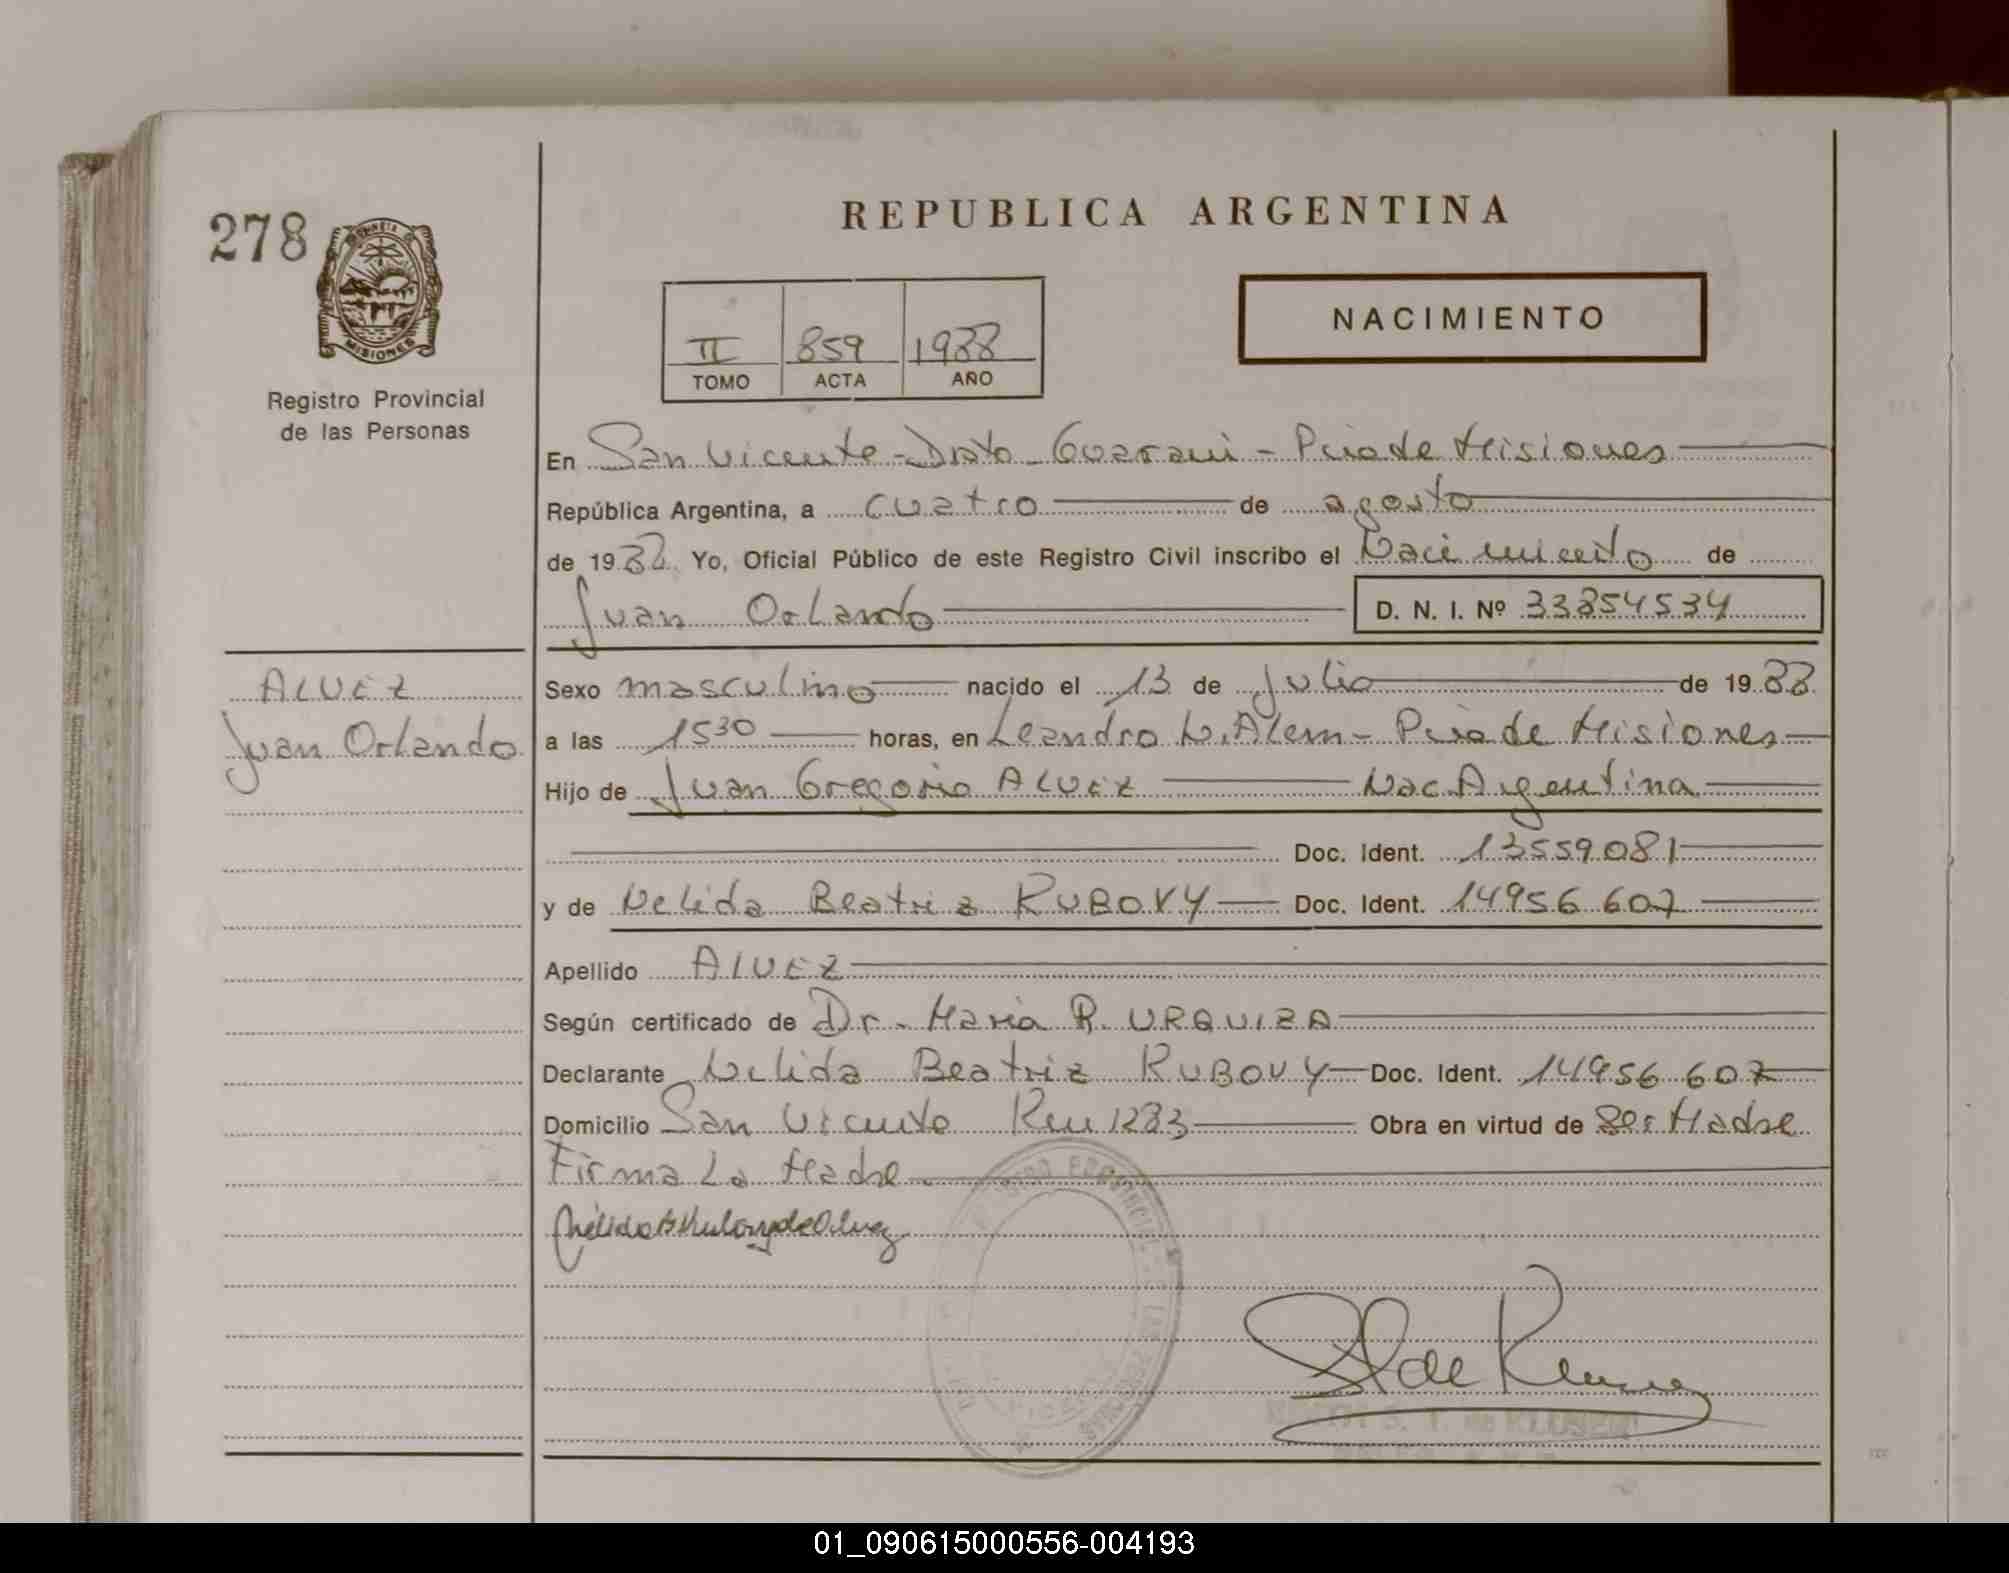 REPUBLICA ARGENTINA
278
MISIONES
Registro Provincial
de las Personas
II 859 1988
TOMO ACTA AÑO
NACIMIENTO
En San Vicente - Dpto Guarani - Pcia de Misiones
República Argentina, a cuatro de agosto
de 1988 Yo, Oficial Público de este Registro Civil inscribo el Nacimiento de
Juan Orlando D. N. I. Nº 33854534
ALVEZ
Juan Orlando
Sexo masculino nacido el 13 de Julio de 1988
a las 1530 horas, en Leandro N. Alem - Pcia de Misiones
Hijo de Juan Gregorio ALVEZ Nac Argentina
Doc. Ident. 13559081
y de Nelida Beatriz KUBOVY Doc. Ident. 14956607
Apellido ALVEZ
Según certificado de Dr. Maria R. URQUIZA
Declarante Nelida Beatriz KUBOVY Doc. Ident. 14956607
Domicilio San Vicente Km 1283 Obra en virtud de Ser Madre
Firma La Madre.
01_090615000556-004193